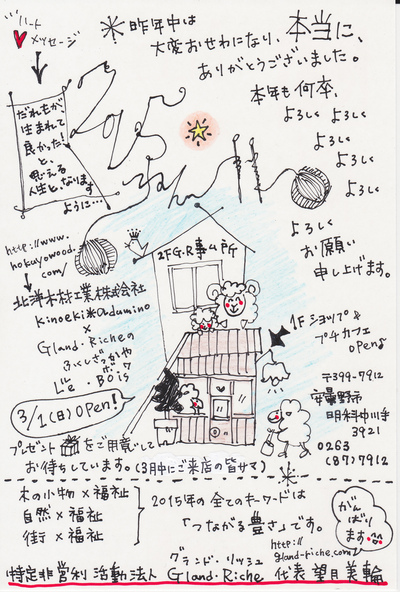 ハート
メッセージ
※昨年中は
大変おせわになり、本当に、
ありがとうございました。
本年も何卒、
よろしく よろしく
よろしく
よろしく
よろしく
よろしく
お願い
申し上げます。
だれもが、
生まれて
良かった!
と、
思える
人生となります
ように…
2015
http://www.
hokuyowood.
com/
2F G.R事ム所
北洋木材工業株式会社
Kinoeki※
×
Gland・Richeの
ふくしざっかや
ボワ
Le・Bois
3/1(日)OPen!
1Fショップ&
プチカフェ
OPeng
〒399-7912
安曇野市
明科中川手
3921
0263
(87)7912
プレゼント をご用意して
お待ちしています。(3月中にご来店の皆サマ)
木の小物×福祉
自然×福祉
街×福祉
2015年の全てのキーワードは
「つながる豊さ」です。
がんばり
ます。
http://
gland-riche.com/
グランド・リッシュ
特定非営利活動法人 Gland・Riche 代表 望月美輪